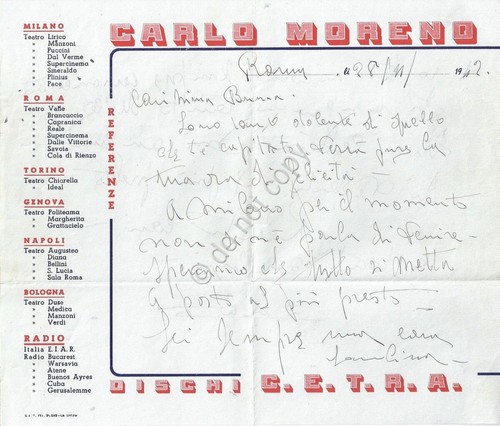 CARLO MORENO
MILANO
Teatro Lirico
» Manzoni
» Puccini
» Dal Verme
» Supercinema
» Smeraldo
» Plinius
» Pace
ROMA
Teatro Valle
» Brancaccio
» Capranica
» Reale
» Supercinema
» Dalle Vittorie
» Savoia
» Cola di Rienzo
TORINO
Teatro Chiarella
» Ideal
GENOVA
Teatro Politeama
» Margherita
» Grattacielo
NAPOLI
Teatro Augusteo
» Diana
» Bellini
» S. Lucia
» Sala Roma
BOLOGNA
Teatro Duse
» Medica
» Manzoni
» Verdi
RADIO
Italia E.I.A.R.
Radio Bucarest
» Warsavia
» Atene
» Buenos Ayres
» Cuba
» Gerusalemme
REFERENZE
Roma, 28/11/1942
Carissima
Sono tanto dolente di quello
che ti capita. Verrà pure la
tua ora di felicità -
A Milano per il momento
non se ne parla di venire -
Speriamo che tutto si metta
a posto al più presto -
Sei sempre una cara
DISCHI C.E.T.R.A.
do not copy